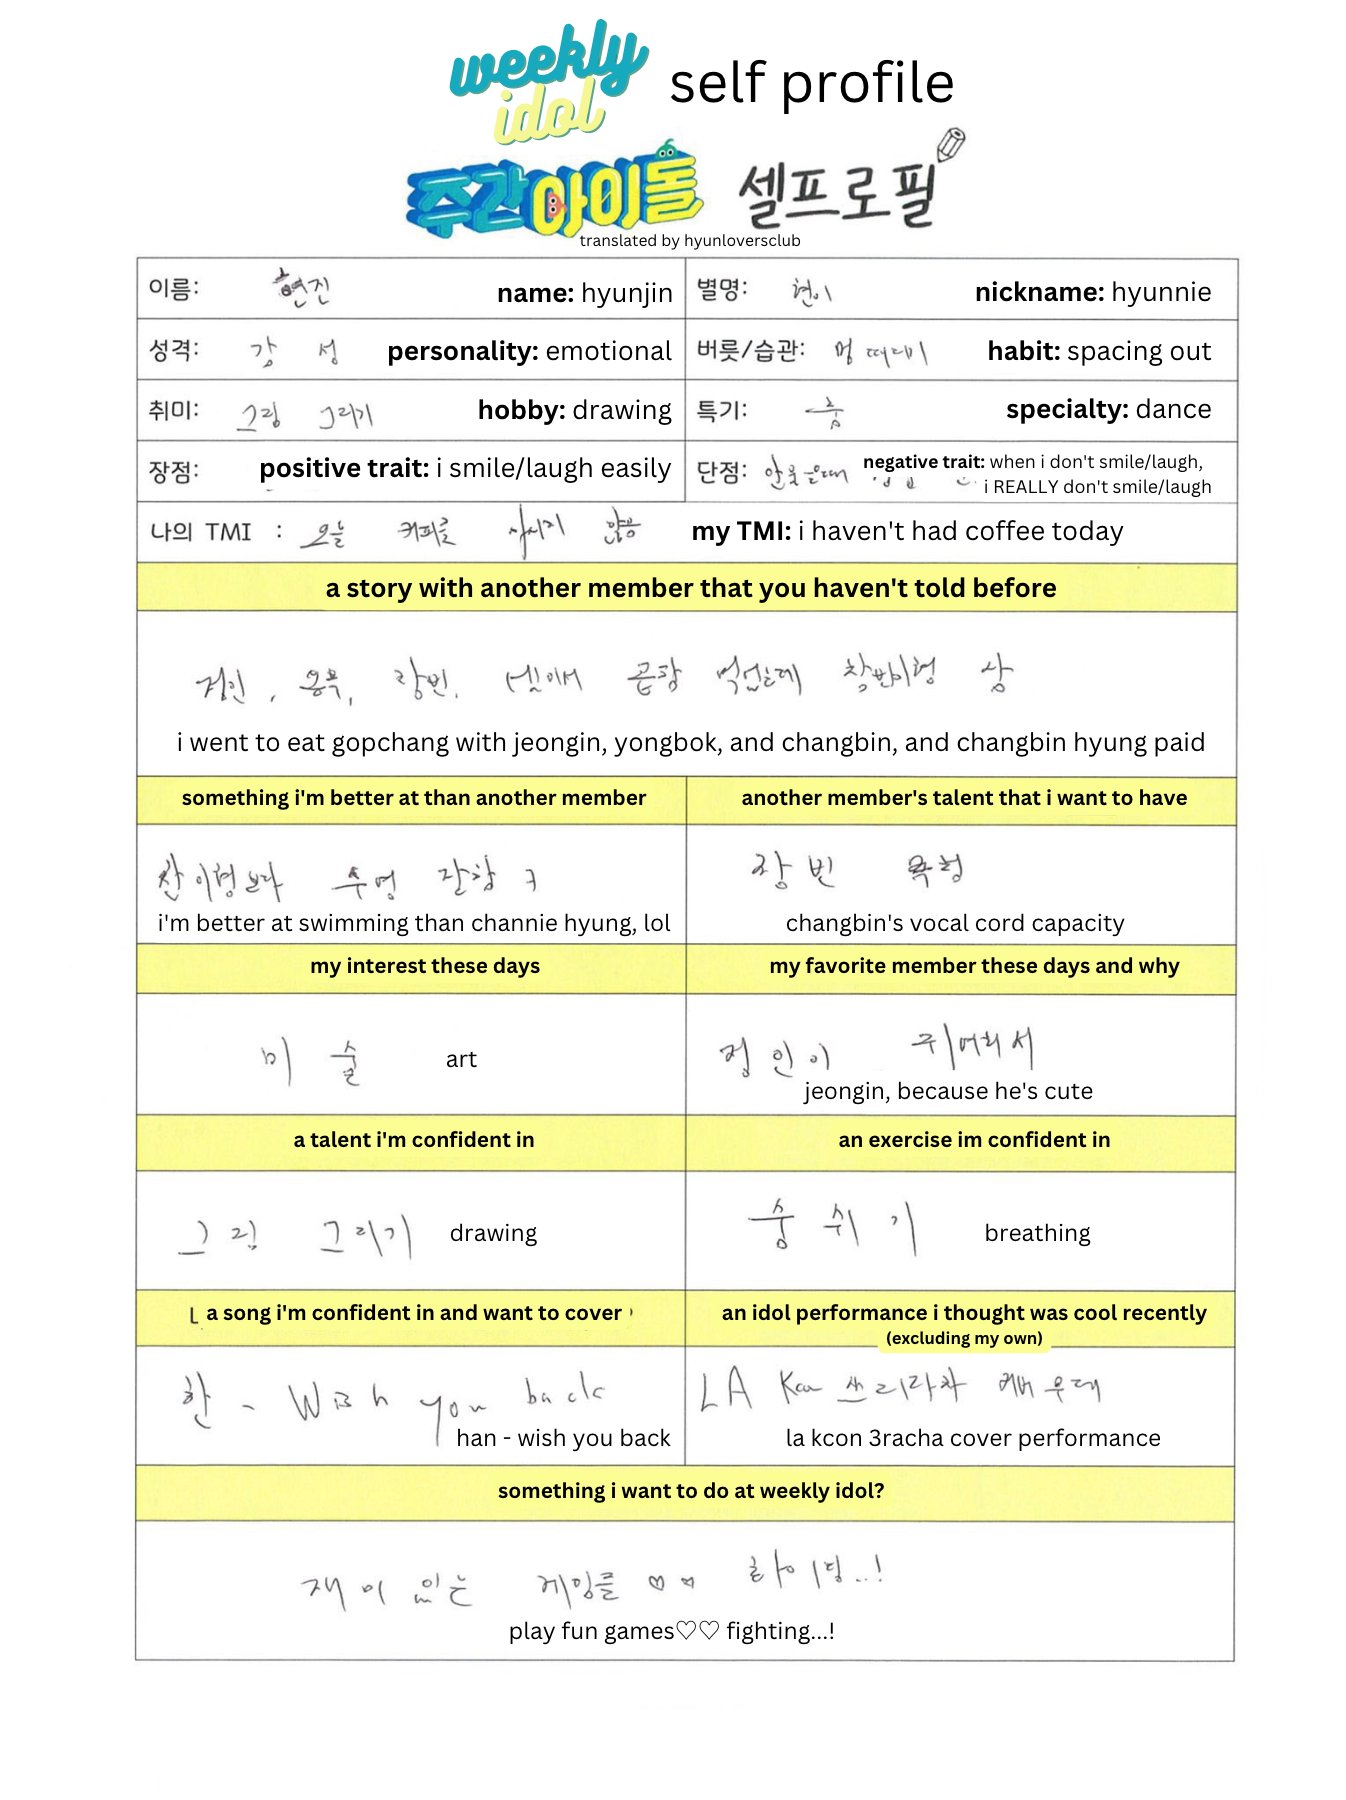 weekly
idol
self profile
주간아이돌 셀프로필
translated by hyunloversclub
이름: 현진 name: hyunjin
별명: 현이 nickname: hyunnie
성격: 감성 personality: emotional
버릇/습관: 멍때리기 habit: spacing out
취미: 그림 그리기 hobby: drawing
특기: 춤 specialty: dance
장점: positive trait: i smile/laugh easily
단점: 안웃을때 negative trait: when i don't smile/laugh,
i REALLY don't smile/laugh
나의 TMI : 오늘 커피를 마시지 않음 my TMI: i haven't had coffee today
a story with another member that you haven't told before
정인, 용복, 창빈, 셋이서 곱창 먹었는데 창빈이형 삼
i went to eat gopchang with jeongin, yongbok, and changbin, and changbin hyung paid
something i'm better at than another member
another member's talent that i want to have
찬이형보다 수영 잘함 ㅋ
i'm better at swimming than channie hyung, lol
창빈 목청
changbin's vocal cord capacity
my interest these days
my favorite member these days and why
미술 art
정인이 귀여워서
jeongin, because he's cute
a talent i'm confident in
an exercise im confident in
그림 그리기 drawing
숨쉬기 breathing
a song i'm confident in and want to cover
an idol performance i thought was cool recently
(excluding my own)
한 - Wish you back
han - wish you back
LA Kcon 쓰리라차 커버무대
la kcon 3racha cover performance
something i want to do at weekly idol?
재미있는 게임를 ♡♡ 화이팅..!
play fun games♡♡ fighting...!